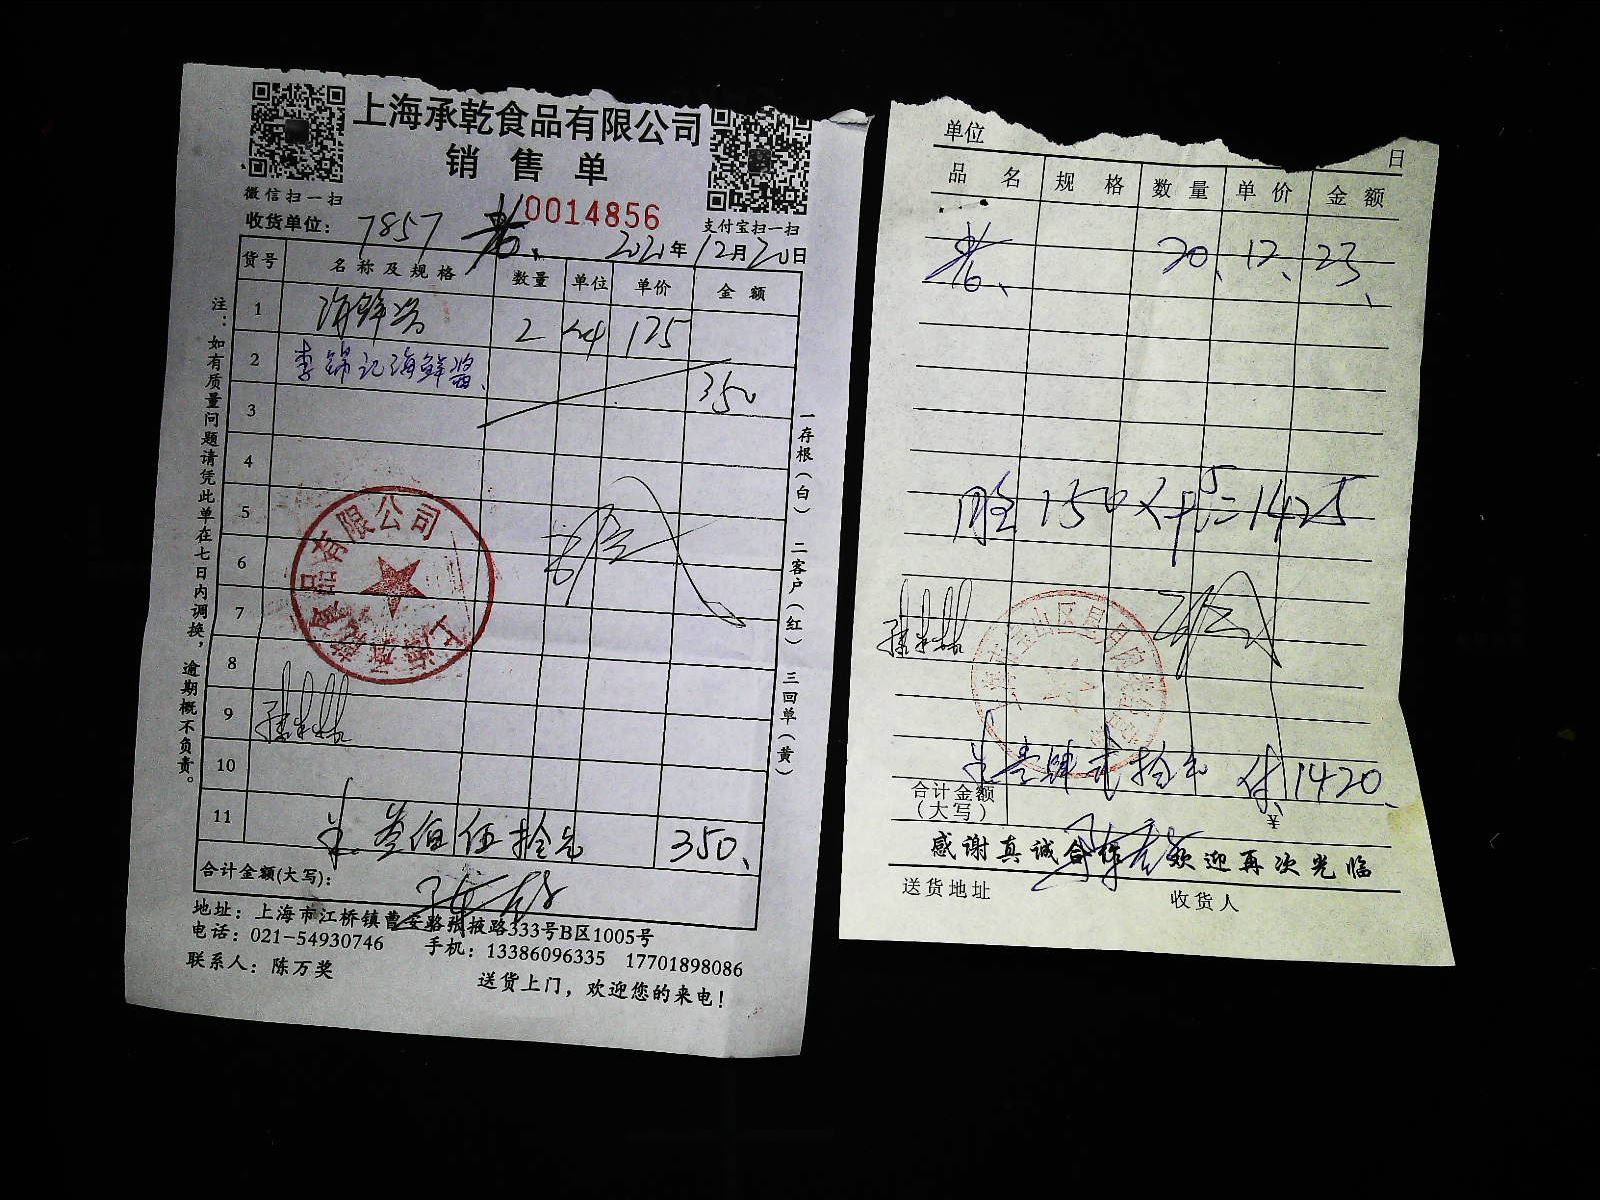 上海承乾食品有限公司
销售单
微信扫一扫
0014856
支付宝扫一扫
收货单位: 7857 2020年12月20日
货号 名称及规格 数量 单位 单价 金额
1 海鲜酱 2 125
2 李锦记海鲜酱 350
3
4
5
6
7
8
9
10
11 叁佰伍拾元 350
合计金额(大写):
地址: 上海市江桥镇曹安路张掖路333号B区1005号
电话: 021-54930746 手机: 13386096335 17701898086
联系人: 陈万奖 送货上门,欢迎您的来电!
注:如有质量问题请凭此单在七日内调换,逾期概不负责。
一存根(白) 二客户(红) 三回单(黄)
上海承乾食品有限公司
单位 日
品名 规格 数量 单价 金额
20、12、23、
150 = 1425
壹肆贰拾元 付1420
合计金额(大写) ¥
感谢真诚合作 欢迎再次光临
送货地址 收货人